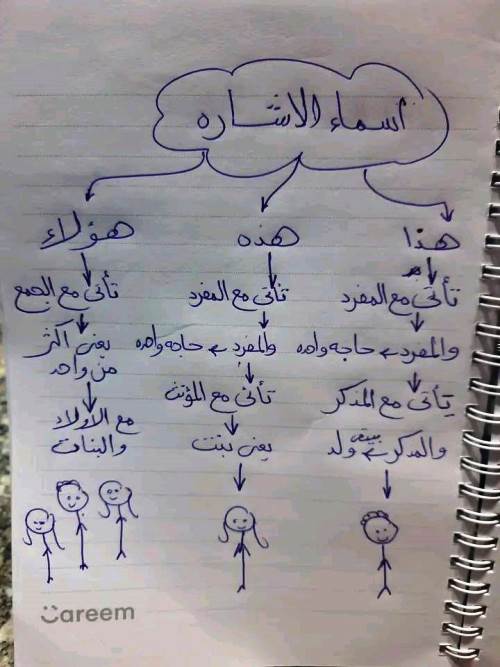 أسماء الاشاره
هذا
تأتى مع المفرد
والمفرد ے حاجه واحده
يأتى مع المذكر
والمدكر ے يعنى ولد
هذه
تأتى مع المفرد
والمفرد ے حاجه واحده
تأتى مع المؤنث
يعنى بنت
هؤلاء
تأتى مع الجمع
يعنى أكثر
من واحد
مع الأولاد
والبنات
Careem